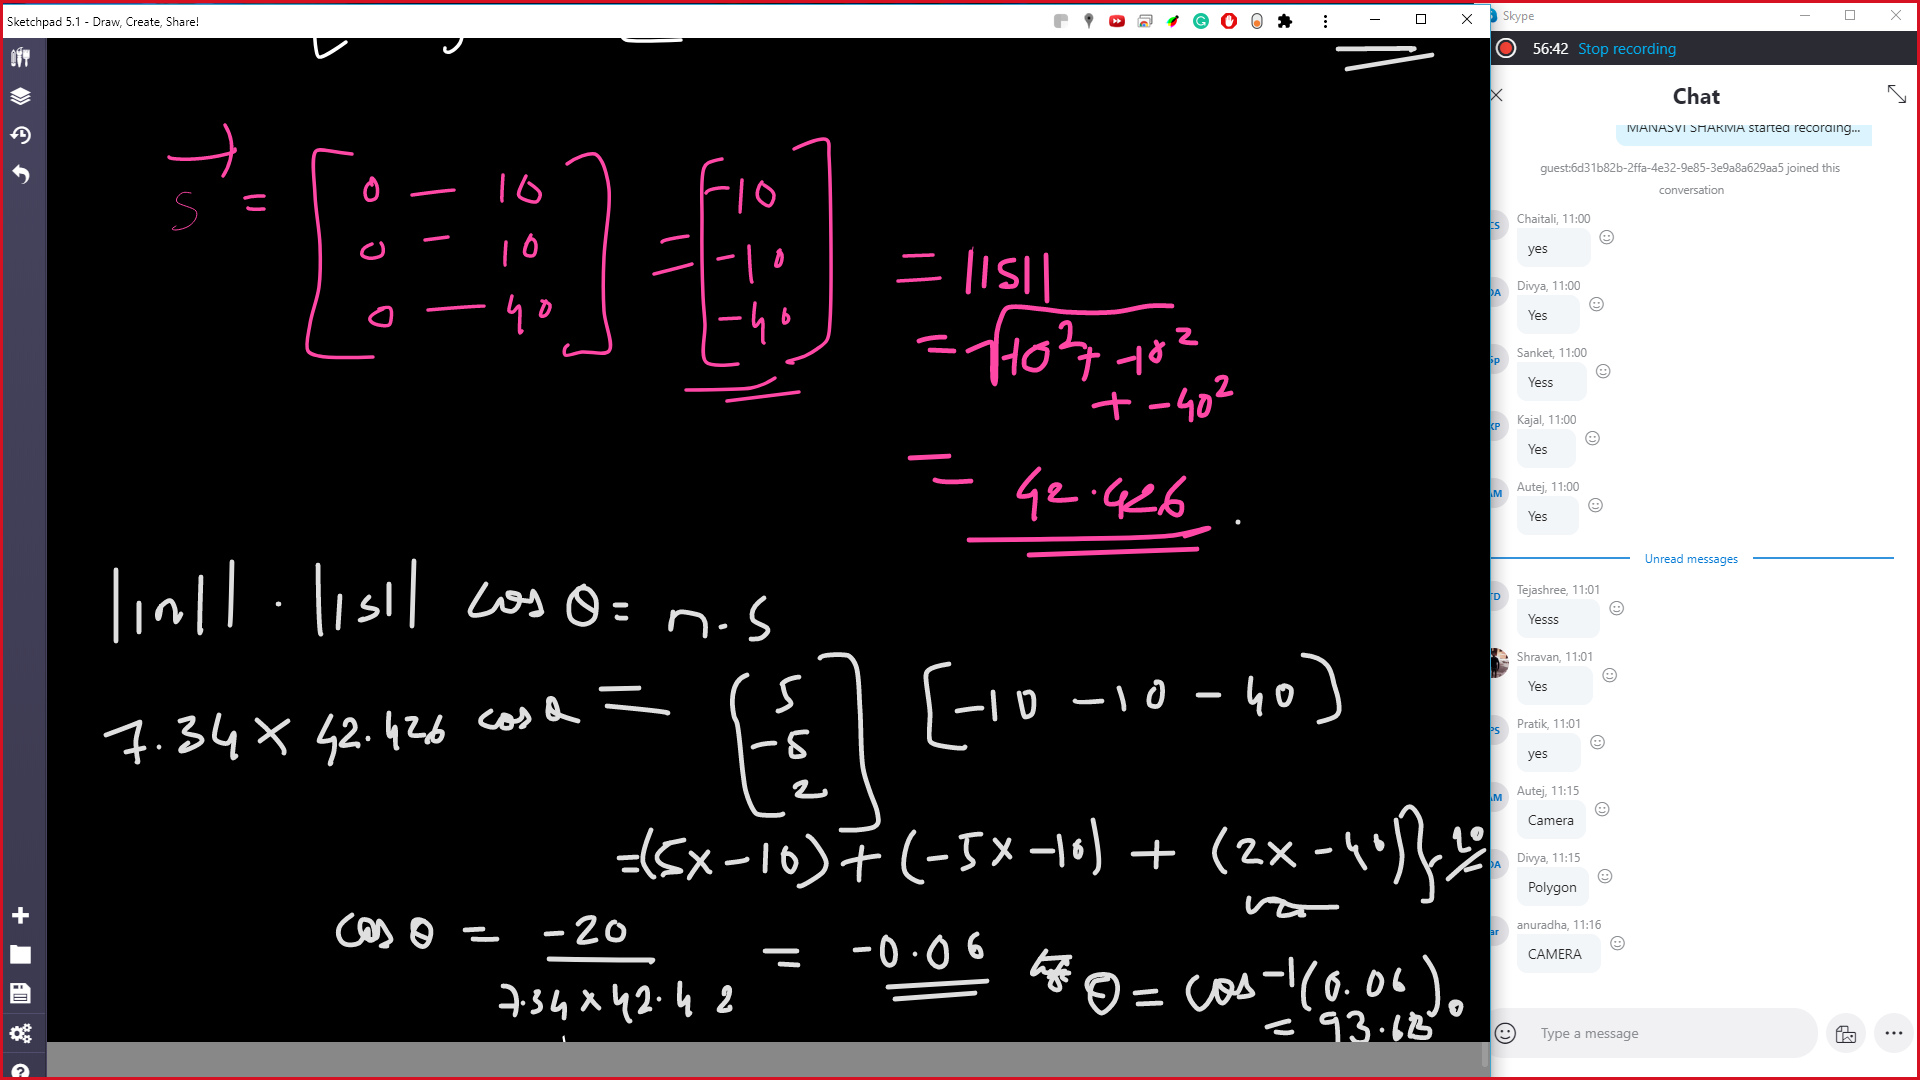 Sketchpad 5.1 - Draw, Create, Share!
s = [0 — 10
0 - 10
0 — 40] = [-10
-10
-40]
= ||s||
= √-10² + -10²
+ -40²
= 42.426
||n|| . ||s|| cos θ = n. s
7.34 × 42.426 cos θ = [5
-5
2] [-10 -10 -40]
= (5x -10) + (-5x -10) + (2x -40)} 20
cos θ = -20
7.34 × 42.42
= -0.06 θ = cos⁻¹(0.06)
= 93.68°
Skype
56:42 Stop recording
Chat
MANASVI SHARMA started recording...
guest:6d31b82b-2ffa-4e32-9e85-3e9a8a629aa5 joined this
conversation
Chaitali, 11:00
yes
Divya, 11:00
Yes
Sanket, 11:00
Yess
Kajal, 11:00
Yes
Autej, 11:00
Yes
Unread messages
Tejashree, 11:01
Yesss
Shravan, 11:01
Yes
Pratik, 11:01
yes
Autej, 11:15
Camera
Divya, 11:15
Polygon
anuradha, 11:16
CAMERA
Type a message